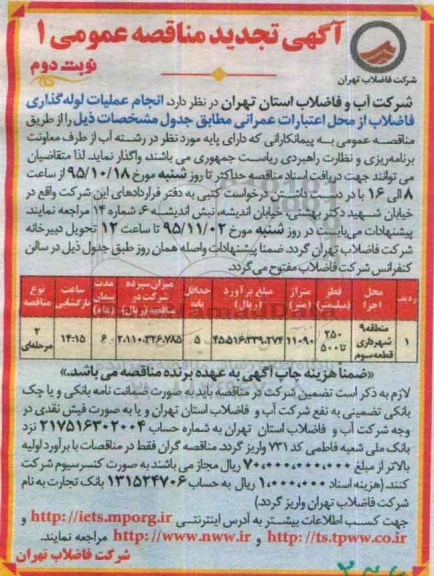 آگهی تجدید مناقصه عمومی ۱
نوبت دوم
شرکت فاضلاب تهران
شرکت آب و فاضلاب استان تهران در نظر دارد، انجام عملیات لوله‌گذاری
فاضلاب از محل اعتبارات عمرانی مطابق جدول مشخصات ذیل را از طریق
مناقصه عمومی به پیمانکارانی که دارای پایه مورد نظر در رشته آب از طرف معاونت
برنامه‌ریزی و نظارت راهبردی ریاست جمهوری می باشند، واگذار نماید. لذا متقاضیان
می توانند جهت دریافت اسناد مناقصه حداکثر تا روز شنبه مورخ ۹۵/۱۰/۱۸ از ساعت
۸ الی ۱۶ با در دست داشتن درخواست کتبی به دفتر قراردادهای این شرکت واقع در
خیابان شهید دکتر بهشتی، خیابان اندیشه، نبش اندیشه ۶، شماره ۱۴ مراجعه نمایند.
پیشنهادات می‌بایست در روز شنبه مورخ ۹۵/۱۱/۰۲ تا ساعت ۱۲ تحویل دبیرخانه
شرکت فاضلاب تهران گردد. ضمنا پیشنهادات واصله همان روز طبق جدول ذیل در سالن
کنفرانس شرکت فاضلاب مفتوح می‌گردد.
ردیف محل اجرا قطر (میلیمتر) متراژ (متر) مبلغ برآورد (ریال) حداقل پایه میزان سپرده شرکت در مناقصه (ریال) مدت پیمان (ماه) ساعت بازگشایی نوع مناقصه
۱ منطقه ۹ شهرداری قطعه سوم ۲۵۰ تا ۵۰۰ ۱۱۰۹۰ ۴۵.۵۱۶.۳۳۹.۲۷۴ ۵ ۲.۱۱۰.۳۲۶.۷۸۵ ۶ ۱۴:۱۵ ۲ مرحله‌ای
«ضمنا هزینه چاپ آگهی به عهده برنده مناقصه می باشد.»
لازم به ذکر است تضمین شرکت در مناقصه باید به صورت ضمانت نامه بانکی و یا چک
بانکی تضمینی به نفع شرکت آب و فاضلاب استان تهران و یا به صورت فیش نقدی در
وجه شرکت آب و فاضلاب استان تهران به شماره حساب ۲۱۷۵۱۶۳۰۲۰۰۴ نزد
بانک ملی شعبه فاطمی کد ۷۳۱ واریز گردد. مناقصه گران فقط در مناقصات با برآورد اولیه
بالاتر از مبلغ ۷۰,۰۰۰,۰۰۰,۰۰۰ ریال مجاز می باشند به صورت کنسرسیوم شرکت
کنند. (هزینه اسناد ۱,۰۰۰,۰۰۰ ریال به حساب ۱۳۱۵۲۴۷۰۶ بانک تجارت به نام
شرکت فاضلاب تهران واریز گردد.)
جهت کسب اطلاعات بیشتر به آدرس اینترنتی http://iets.mporg.ir و
http://ts.tpww.co.ir و http://www.nww.ir مراجعه نمایند.
شرکت فاضلاب تهران